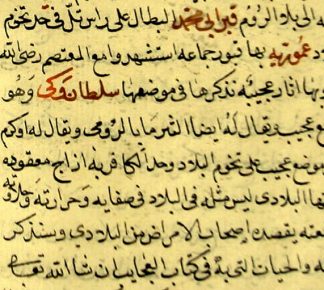 الى بلاد الروم قبر ابى محمد البطال على راس تل فى حد تخوم
عمورية بها قبور جماعه استشهدوا مع المعتصم رضى الله
اثار عجيبه نذكرها فى موضعها سلطان وكى وهو
عجيب ويقال له ايضا الثرما بالرومى ويقال له اوكرم
موضع عجيب على تخوم البلاد وحد
البلادى ليس مثله فى البلاد فى صفايه وحرارته
يقصده اصحاب الامراض من البلاد وسنذكر
والحيات التى به فى كتاب العجايب ان شا الله تعالى